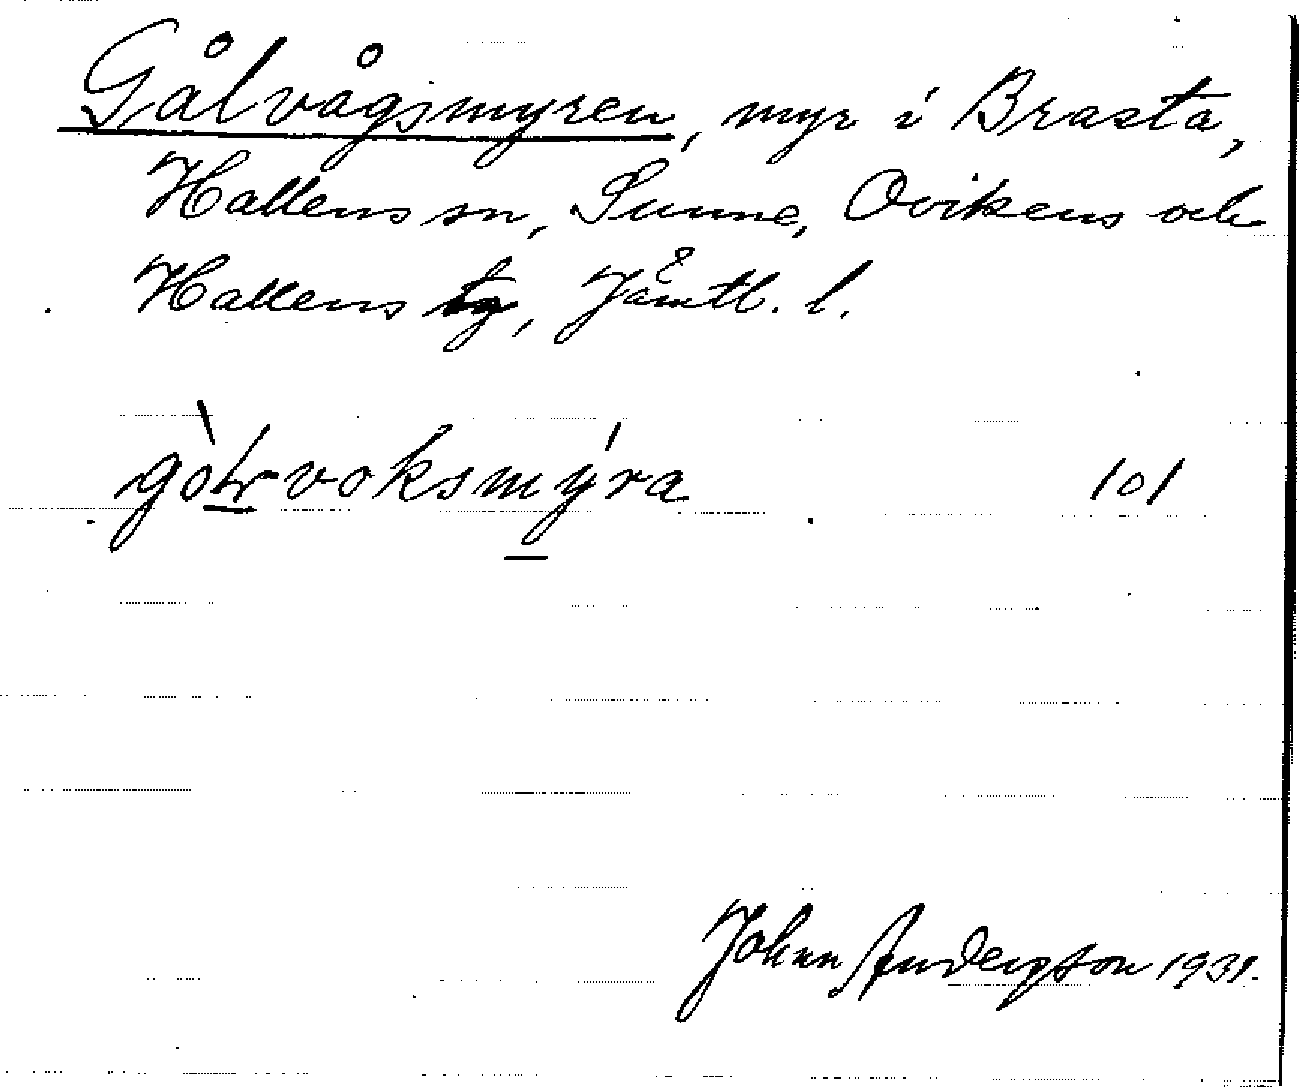 Gålvågsmyren, myr i Brasta,
Hallens sn, Sunne, Ovikens och
Hallens tg, Jämtl. l.
101
Johan Andersson 1931.